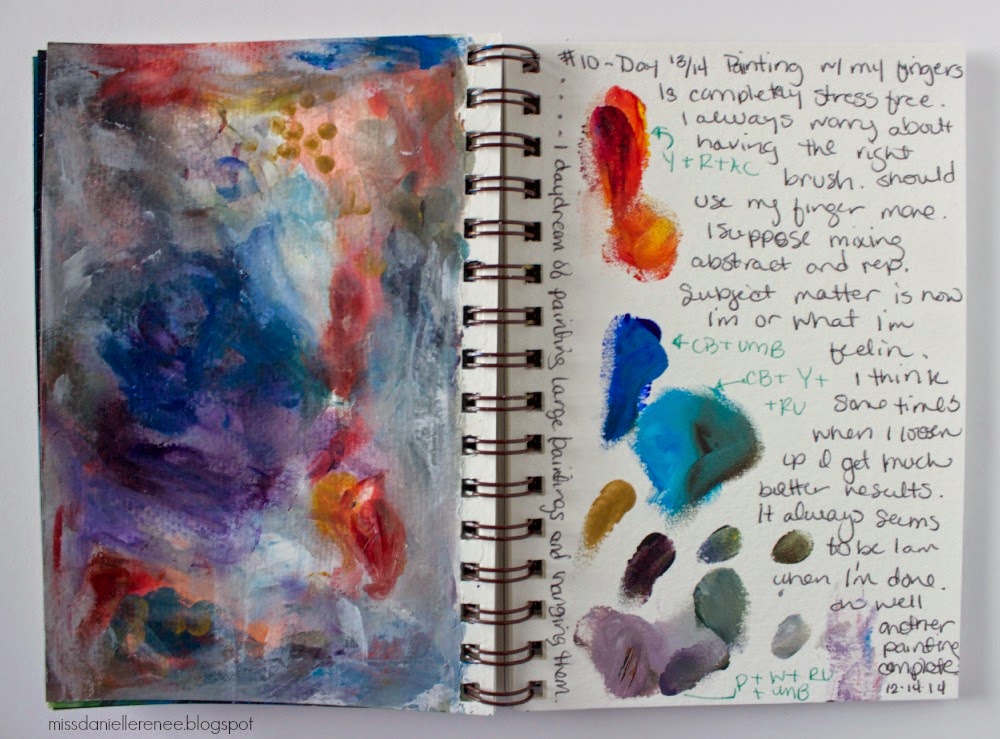 #10 - Day 13/14 Painting w/ my fingers
is completely stress free.
I always worry about
having the right
brush. should
use my finger more.
I suppose mixing
abstract and rep.
Subject matter is now
I'm or what I'm
feelin.
I think
sometimes
when I loosen
up I get much
better results.
It always seems
to be 1am
when I'm done.
oh well
another
painting
complete
12.14.14
Y+R+AC
CB+UMB
CB+ Y+
+RU
P+W+RU
+UMB
.....I daydream of painting large paintings and hanging them.
missdaniellerenee.blogspot